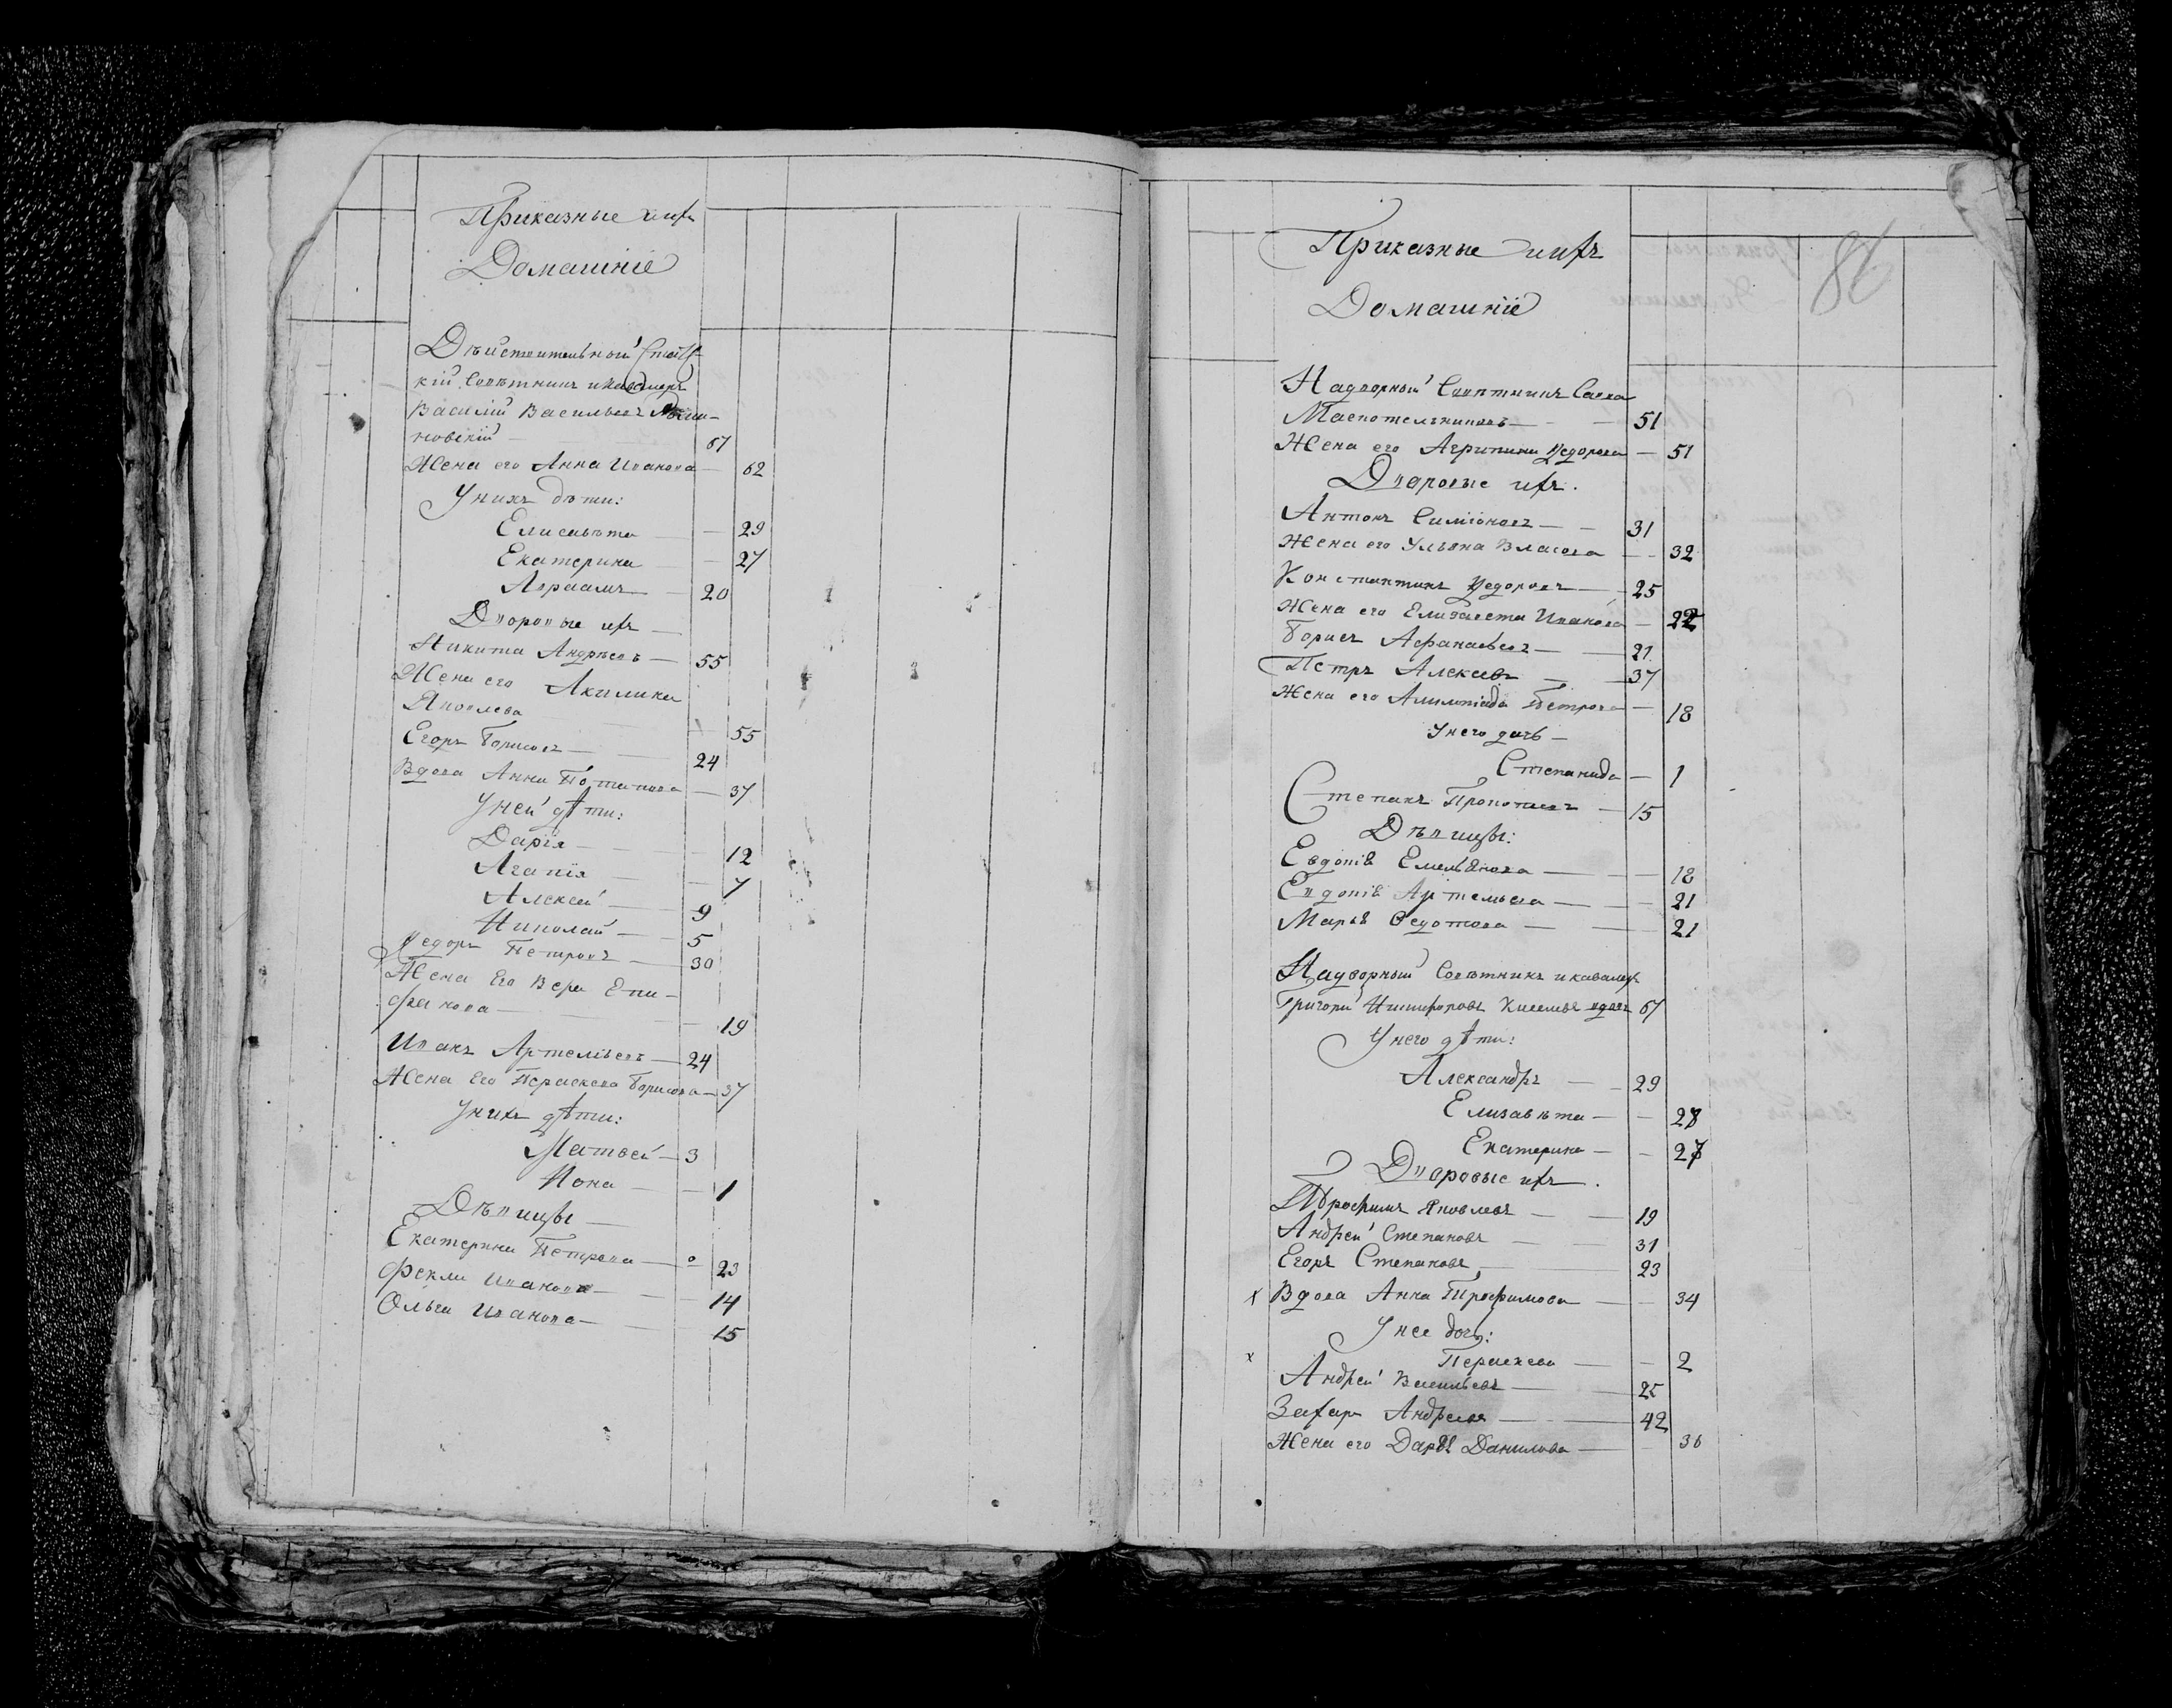 Приказные и ихъ
Домашніе
Дѣйствительный Статс-
кій Совѣтникъ и Кавалеръ
Василій Васильевъ
новскій — 67
Жена его Анна Иванова — 62
У нихъ дѣти:
Елисавѣта — 29
Екатерина — 27
Авраамъ — 20
Дворовые ихъ —
Никита Андрѣевъ — 55
Жена его Акилина
Яковлева — 55
Егоръ Борисовъ — 24
Вдова Анна Потапова — 37
У ней дѣти:
Дарія — 12
Агапія — 7
Алексей — 9
Николай — 5
Ѳедоръ Петровъ — 30
Жена Его Вера Епи-
фанова — 19
Иванъ Артемьевъ — 24
Жена Его Параскева Борисова — 37
У нихъ дѣти:
Матвей — 3
Иона — 1
Дѣвицы —
Екатерина Петрова — 23
Фекла Иванова — 14
Ольга Иванова — 15
Приказные и ихъ
Домашніе
86
Надворный Совѣтникъ Савва
Маслотельниковъ — 51
Жена его Агрипина Ѳедорова — 51
Дворовые ихъ.
Антонъ Симіоновъ — 31
Жена его Ульяна Власова — 32
Константинъ Ѳедоровъ — 25
Жена его Елизавета Иванова — 22
Борисъ Афанасьевъ — 21
Петръ Алексеевъ — 37
Жена его Алимпіада Петрова — 18
У него дочь —
Степанида — 1
Степанъ Прокопьевъ — 15
Дѣвицы:
Евдокія Емельянова — 18
Евдокія Артемьева — 21
Марья Ѳедотова — 21
Надворный Совѣтникъ и кавалеръ
Григори Никифоровъ вдовъ 67
У него дѣти:
Александръ — 29
Елизавѣта — 28
Екатерина — 27
Дворовые ихъ.
Трофимъ Яковлевъ — 19
Андрей Степановъ — 31
Егоръ Степановъ — 23
х Вдова Анна Трофимова — 34
У нее дочь:
х Параскева — 2
Андрей Васильевъ — 25
Захаръ Андреевъ — 42
Жена его Дарья Данилова — 36